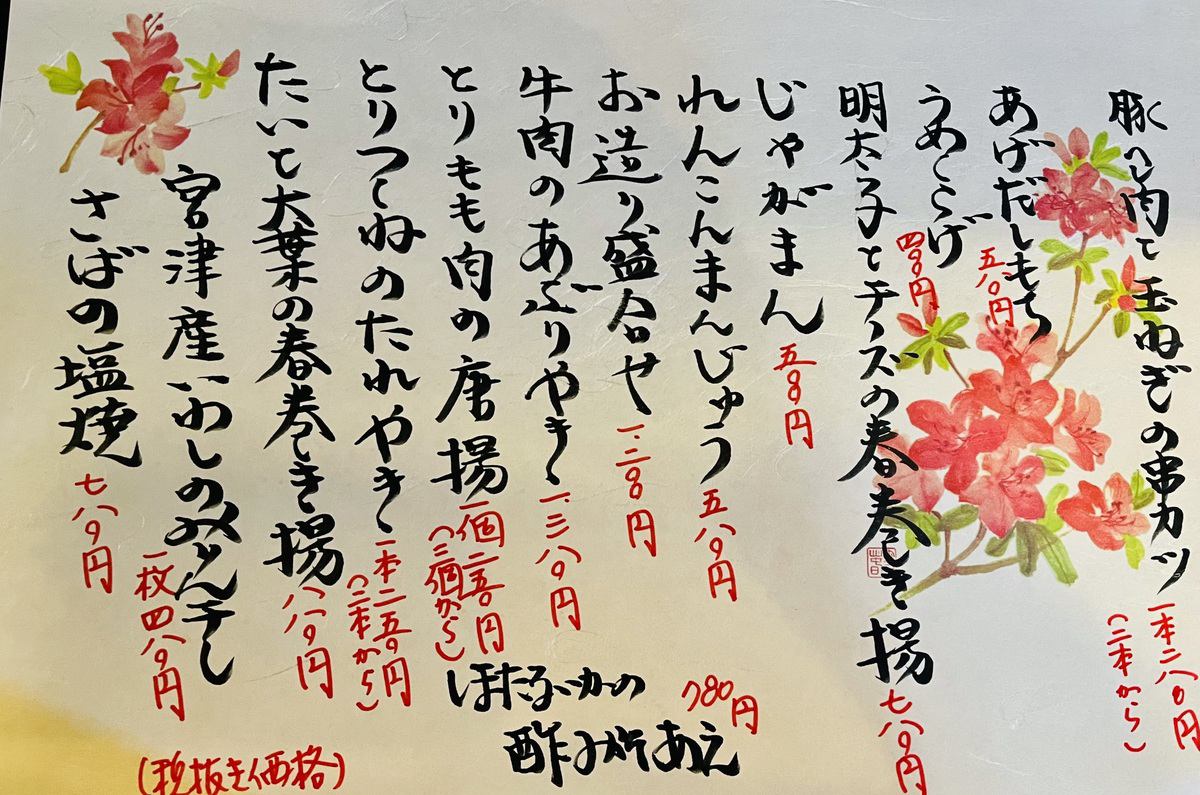 豚肉と玉ねぎの串カツ
一本二八〇円
(二本から)
あげだしもち
五八〇円
うめくらげ
四〇〇円
明太子とチーズの春巻き揚
七八〇円
じゃがまん
五〇〇円
れんこんまんじゅう
五八〇円
お造り盛合せ
一.二〇〇円
牛肉のあぶりやき
一.三八〇円
とりもも肉の唐揚
一個二五〇円
(二個から)
とりつくねのたれやき
一本二五〇円
(二本から)
たいと大葉の春巻き揚
八八〇円
宮津産いわしのみりん干し
一枚四八〇円
さばの塩焼
七八〇円
ほたるいかの
酢みそあえ
780円
(税抜き価格)